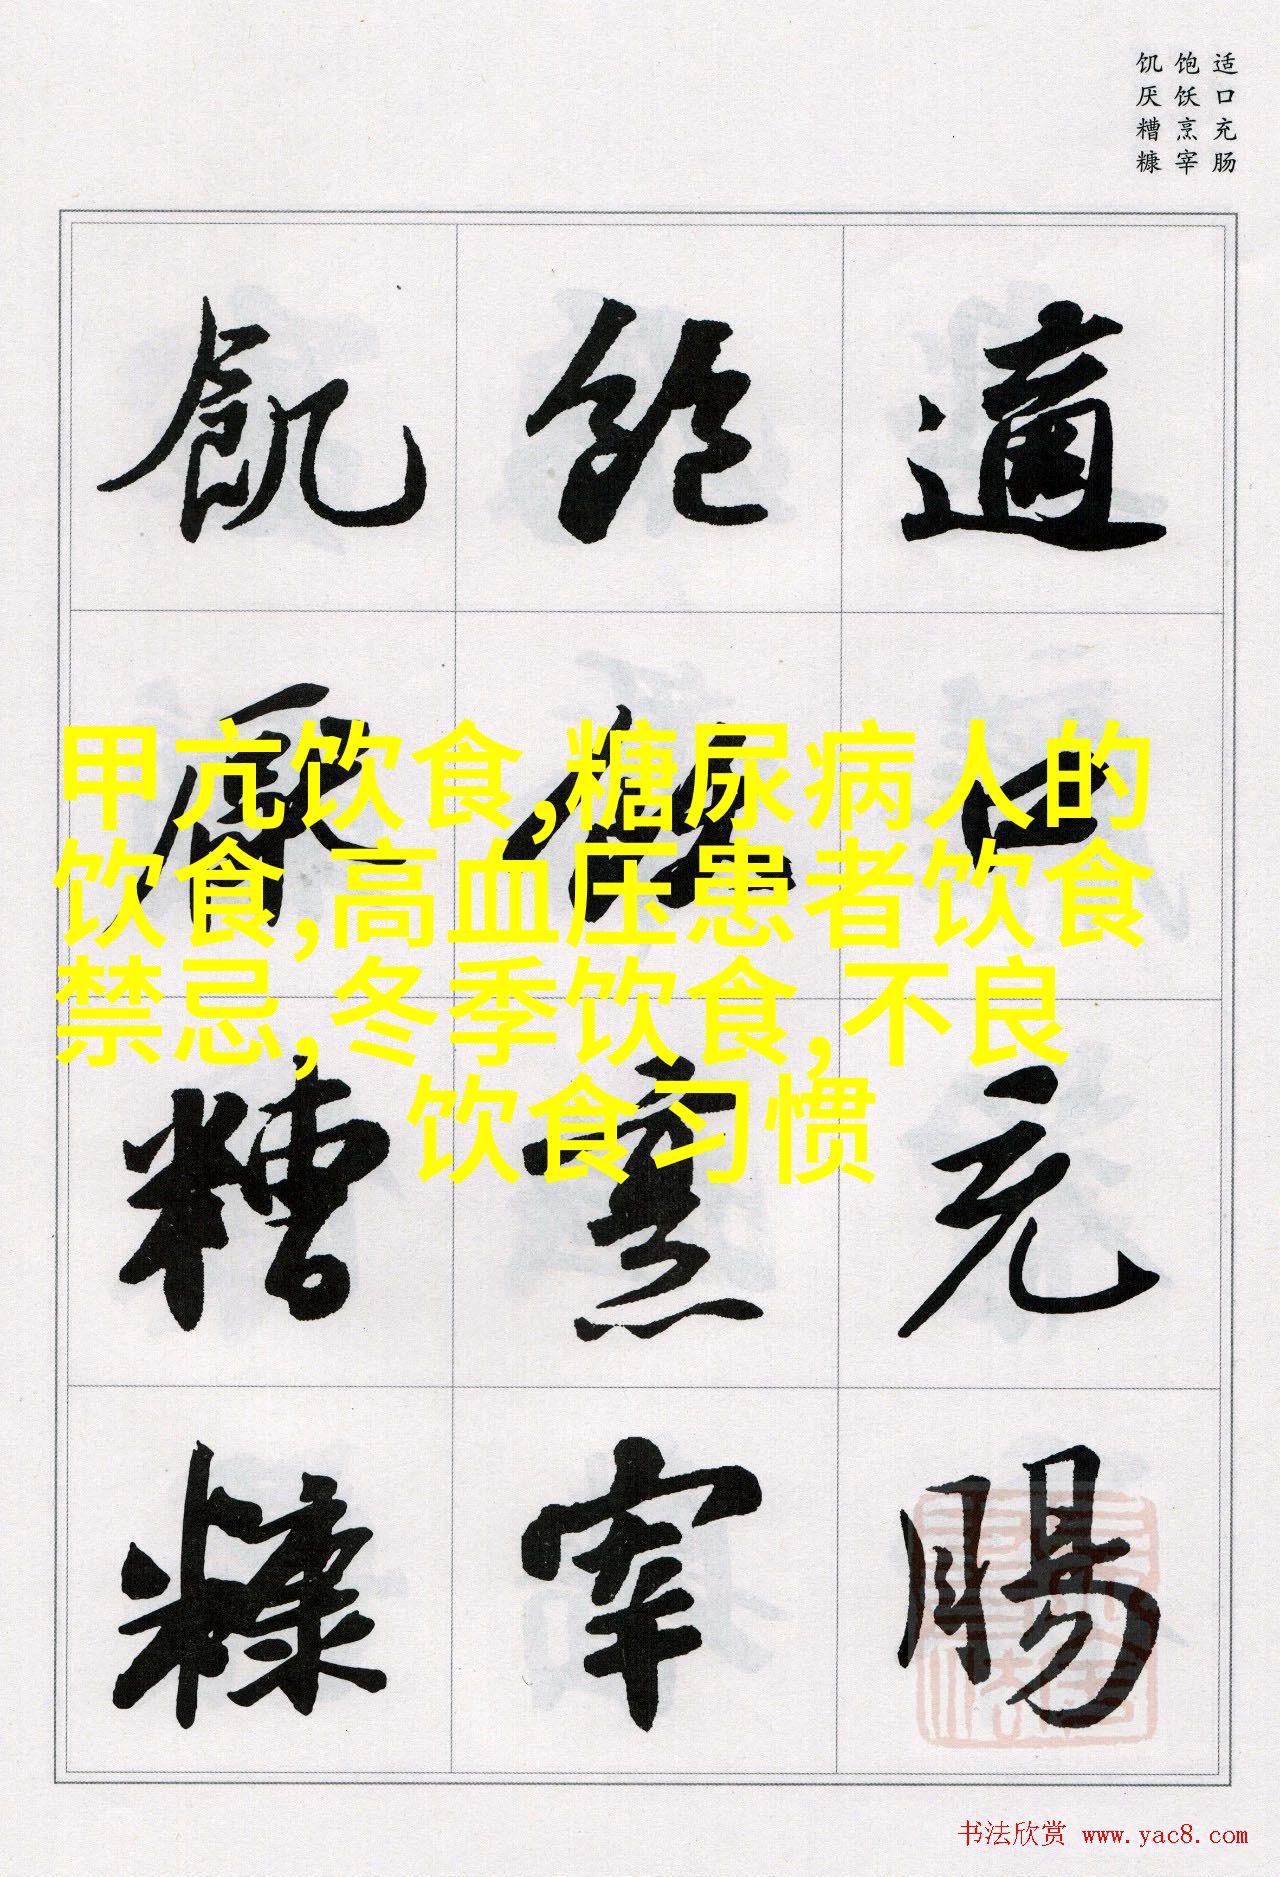 适口充肠
饱饫烹宰
饥厌糟糠
適口充腸
飽飫烹宰
飢厭糟糠
甲亢饮食,糖尿病人的
饮食,高血压患者饮食
禁忌,冬季饮食,不良
饮食习惯
书法欣赏 www.yac8.com